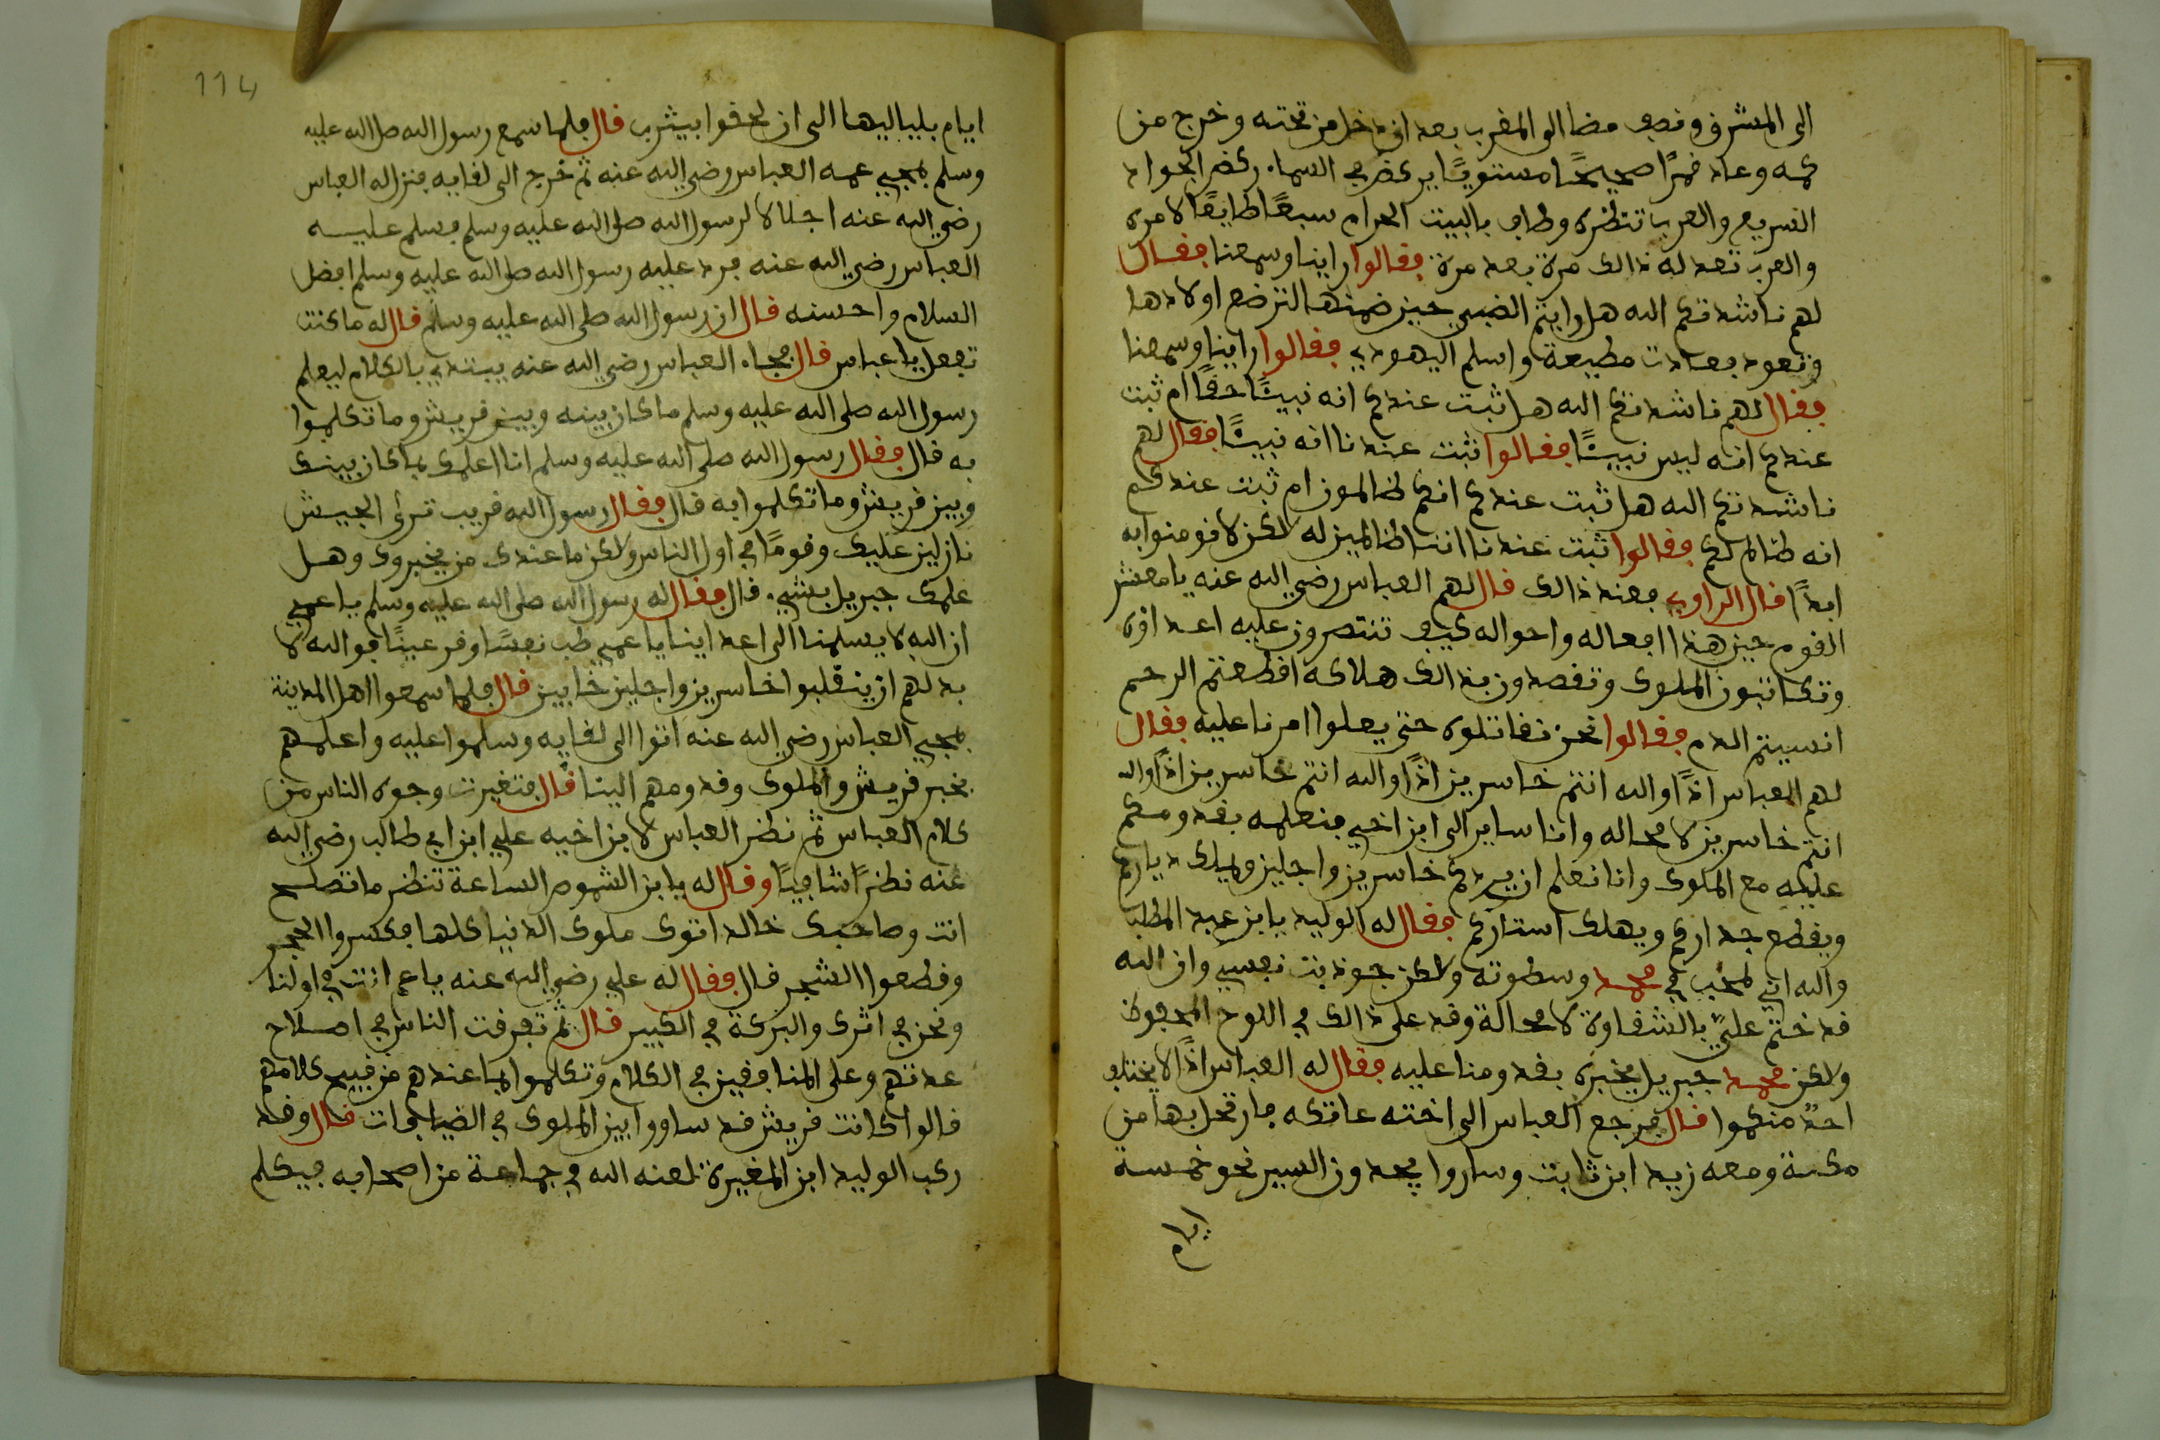 الى المشرق ونصف مضا الى المغرب بعد ان دخل من تحته وخرج من
كمه وعاد قمرًا صحيحًا مستويًا يركض في السماء ركض الجواد
السريع والعرب تنظره وطاف بالبيت الحرام سبعًا طايعًا لامره
والعرب تعد له ذالك مرة بعد مرة فقالوا راينا وسمعنا فقال
لهم ناشدتكم الله هل رايتم الضبي حين ضمنها لترضع اولادها
وتعود فعادت مطيعة واسلم اليهودي فقالوا راينا وسمعنا
فقال لهم ناشدتكم الله هل ثبت عندكم انه نبيًا حقًا ام ثبت
عندكم انه ليس نبيًا فقالوا ثبت عندنا انه نبيًا فقال لهم
ناشدتكم الله هل ثبت عندكم انكم ظالمون ام ثبت عندكم
انه ظالم لكم فقالوا ثبت عندنا اننا ظالمين له لاكن لا نومنوا به
ابدًا قال الراوي فعند ذالك قال لهم العباس رضي الله عنه يا معشر
القوم حين هذا افعاله واحواله كيف تنتصرون عليه اعدا الله
وتكاتبون الملوك وتقصدون بذالك هلاكه اقطعتم الرحم
انسيتم الدم فقالوا نحن نقاتلوه حتى يعلوا امرنا عليه فقال
لهم العباس اذًا والله انتم خاسرين اذًا والله انتم خاسرين اذًا والله
انتم خاسرين لا محاله وانا ساير الى ابن اخي فنعلمه بقدومكم
عليه مع الملوك وانا نعلم ان يردكم خاسرين واجلين ويملك دياركم
ويقطع جداركم ويهلك استاركم فقال له الوليد يا بن عبد المطلب
والله اني لمحب في محمد وسطوته ولاكن جوذبت نفسي وان الله
قد ختم عليّ بالشقاوة لا محالة وقد علي ذالك في اللوح المحفوظ
ولاكن محمد جبريل يخبره بقدومنا عليه فقال له العباس اذًا لا يختلف
احدٌ منكموا قال فرجع العباس الى اخته عاتكه فارتحل بها من
مكة ومعه زيد ابن ثابت وساروا يجدون السير نحو خمسة
ايام
114
ايام بلياليها الى ان لحقوا بيثرب قال فلما سمع رسول الله صلى الله عليه
وسلم بمجيء عمه العباس رضي الله عنه ثم خرج الى لقايه فنزل له العباس
رضي الله عنه اجلالا لرسول الله صلى الله عليه وسلم فسلم عليه
العباس رضي الله عنه فرد عليه رسول الله صلى الله عليه وسلم افضل
السلام واحسنه قال ان رسول الله صلى الله عليه وسلم قال له ما كنت
تفعل يا عباس قال فجاء العباس رضي الله عنه يبتدي بالكلام ليعلم
رسول الله صلى الله عليه وسلم ما كان بينه وبين قريش وما تكلموا
به قال فقال رسول الله صلى الله عليه وسلم انا اعلمك بما كان بينك
وبين قريش وما تكلموا به قال فقال رسول الله قريب ترى الجيش
نازلين عليك وقومًا في اول الناس ولاكن ما عندك من يخبروك وهل
علمك جبريل بشيء قال فقال له رسول الله صلى الله عليه وسلم يا عمي
ان الله لا يسلمنا الى اعداينا يا عمي طب نفسًا وقر عينًا فوالله لا
بد لهم ان ينقلبوا خاسرين واجلين خايبين قال فلما سمعوا اهل المدينة
بمجيء العباس رضي الله عنه اتوا الى لقايه وسلموا عليه واعلمهم
بخبر قريش والملوك وقدومهم الينا قال فتغيرت وجوه الناس من
كلام العباس ثم نظر العباس لابن اخيه علي ابن ابي طالب رضي الله
عنه نظرًا شافيًا وقال له يا بن الشهوم الساعة تنظر ما تصلح
انت وصاحبك خالد اتوك ملوك الدنيا كلها فكسروا الحجر
وقطعوا الشجر قال فقال له علي رضي الله عنه يا عم انت في اولنا
ونحن في اثرك والبركة في الكبير قال ثم تفرقت الناس في اصلاح
عدتهم وعلى المنافقين في الكلام وتكلموا بما عندهم من قبيح كلامهم
قالوا كانت قريش قد ساووا بين الملوك في الضيافات قال وقد
ركب الوليد ابن المغيرة لعنه الله في جماعة من اصحابه فيكلم